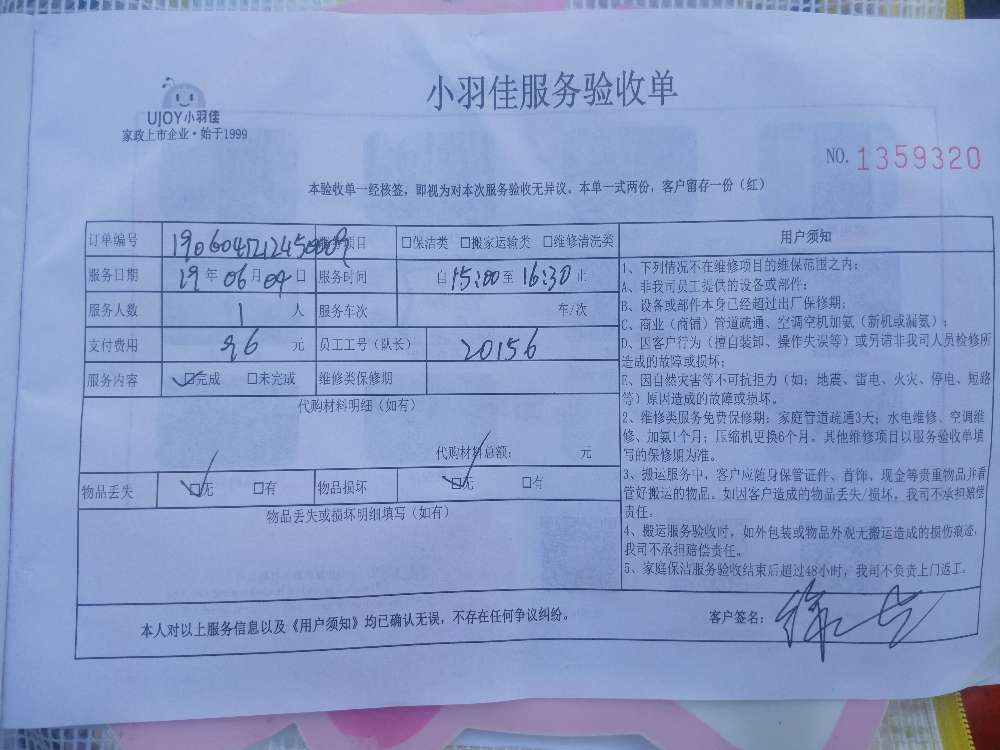 UJOY小羽佳
家政上市企业·始于1999
小羽佳服务验收单
NO. 1359320
本验收单一经核签，即视为对本次服务验收无异议。本单一式两份，客户留存一份（红）
订单编号 服务项目 □保洁类 □搬家运输类 □维修清洗类
服务日期 19年06月04日 服务时间 自15:00至16:30止
服务人数 1 人 服务车次 车/次
支付费用 96 元 员工工号（队长） 20156
服务内容 □完成 □未完成 维修类保修期
代购材料明细（如有）
代购材料总额： 元
物品丢失 □无 □有 物品损坏 □无 □有
物品丢失或损坏明细填写（如有）
用户须知
1、下列情况不在维修项目的维保范围之内：
A、非我司员工提供的设备或部件；
B、设备或部件本身已经超过出厂保修期；
C、商业（商铺）管道疏通、空调空机加氨（新机或漏氨）；
D、因客户行为（擅自装卸、操作失误等）或另请非我司人员检修所
造成的故障或损坏；
E、因自然灾害等不可抗拒力（如：地震、雷电、火灾、停电、短路
等）原因造成的故障或损坏。
2、维修类服务免费保修期：家庭管道疏通3天；水电维修、空调维
修、加氨1个月；压缩机更换6个月。其他维修项目以服务验收单填
写的保修期为准。
3、搬运服务中，客户应随身保管证件、首饰、现金等贵重物品并看
管好搬运的物品。如因客户造成的物品丢失/损坏，我司不承担赔偿
责任。
4、搬运服务验收时，如外包装或物品外观无搬运造成的损伤痕迹，
我司不承担赔偿责任。
5、家庭保洁服务验收结束后超过48小时，我司不负责上门返工。
本人对以上服务信息以及《用户须知》均已确认无误，不存在任何争议纠纷。 客户签名：